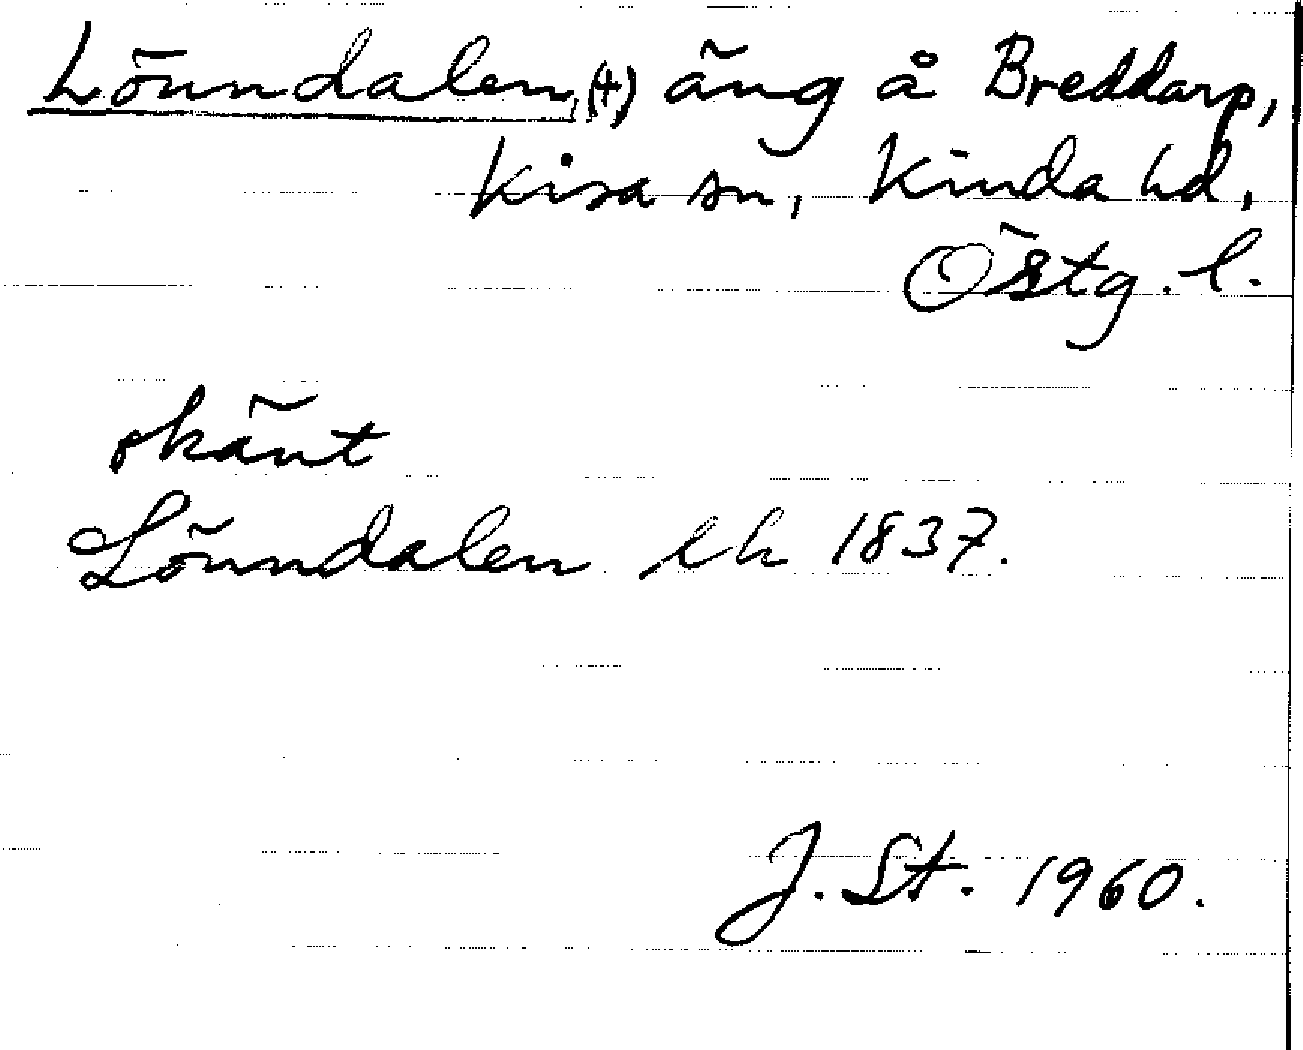 Lönndalen, (†) äng å Breddarp,
Kisa sn, Kinda hd,
Östg. l.
okänt
Lönndalen lh 1837.
J. St. 1960.